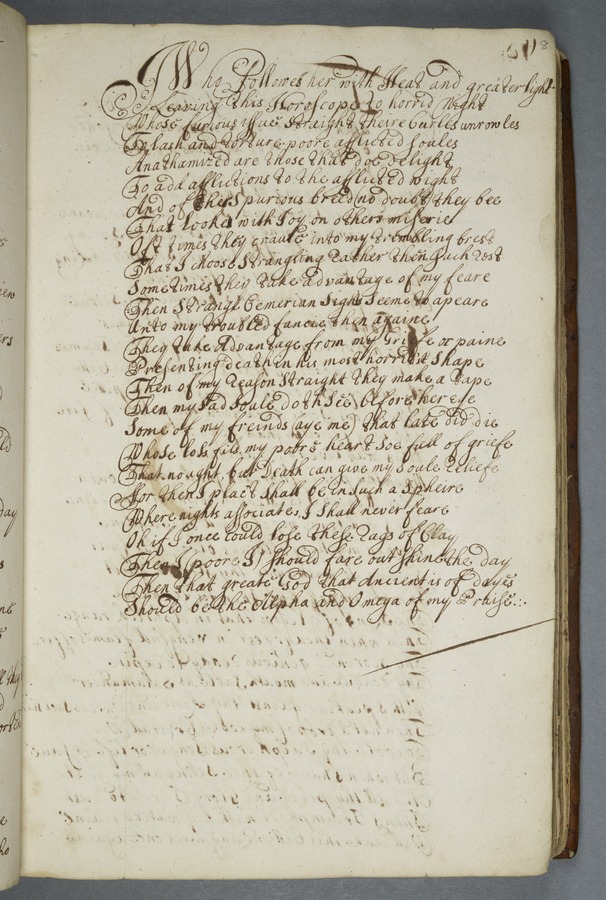 Who followes her with Heat and greater light
Leaving this Horoscope to horrid Night
Whose furious issue straight theire Curles unrowles
To lash and torture poore afflicted soules
Anathamized are those that doe delight
To ad afflictions to the afflicted wight
And of these spurious breed no doubt they bee
That lookes with Joy on others miserie
Oft times they craule into my trembling brest
That I choose strangling rather then such rest
Sometimes they take advantage of my feare
Then strange Cemerian sights seeme to apeare
Unto my troubled fancie then againe
They take Advantage from my Griefe or paine
Presenting death in his most horrid'st shape
Then of my Reason straight they make a Rape
Then my sad soule doth see before her eye
Some of my freinds (aye me) that late did die
Whose loss fils my poore heart soe full of griefe
That nought but Death can give my soule reliefe
For then I plact shall be in such a spheire
Where nights associates I shall never feare
Oh if I once could lose these rags of Clay
Then (poore I) should fare out shine the day
Then that greate God that Ancient is of Dayes
Should be the Alpha and Omega of my Praise